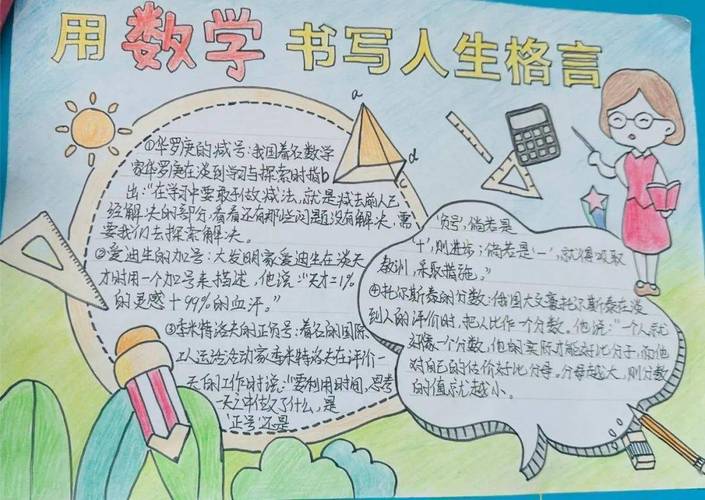 用数学书写人生格言
①华罗庚的减号:我国著名数学
家华罗庚在谈到学习与探索时指
出:"在学习中要敢于做减法,就是减去前人已
经解决的部分,看看还有那些问题没有解决,需
要我们去探索解决。
②爱迪生的加号:大发明家爱迪生在谈天
才时用一个加号来描述,他说:"天才=1%
的灵感+99%的血汗。"
③季米特洛夫的正负号:著名的国际
工人运动活动家季米特洛夫在评价一
天的工作时说:"要利用时间,思考
一天之中做了什么,是
正号还是
负号,倘若是
'+',则进步;倘若是'-',就得吸取
教训,采取措施。"
④托尔斯泰的分数:俄国大文豪托尔斯泰在谈
到人的评价时,把人比作一个分数。他说:"一个人就
好像一个分数,他的实际才能好比分子,而他
对自己的估价好比分母。分母越大,则分数
的值就越小。
a
b
c
d